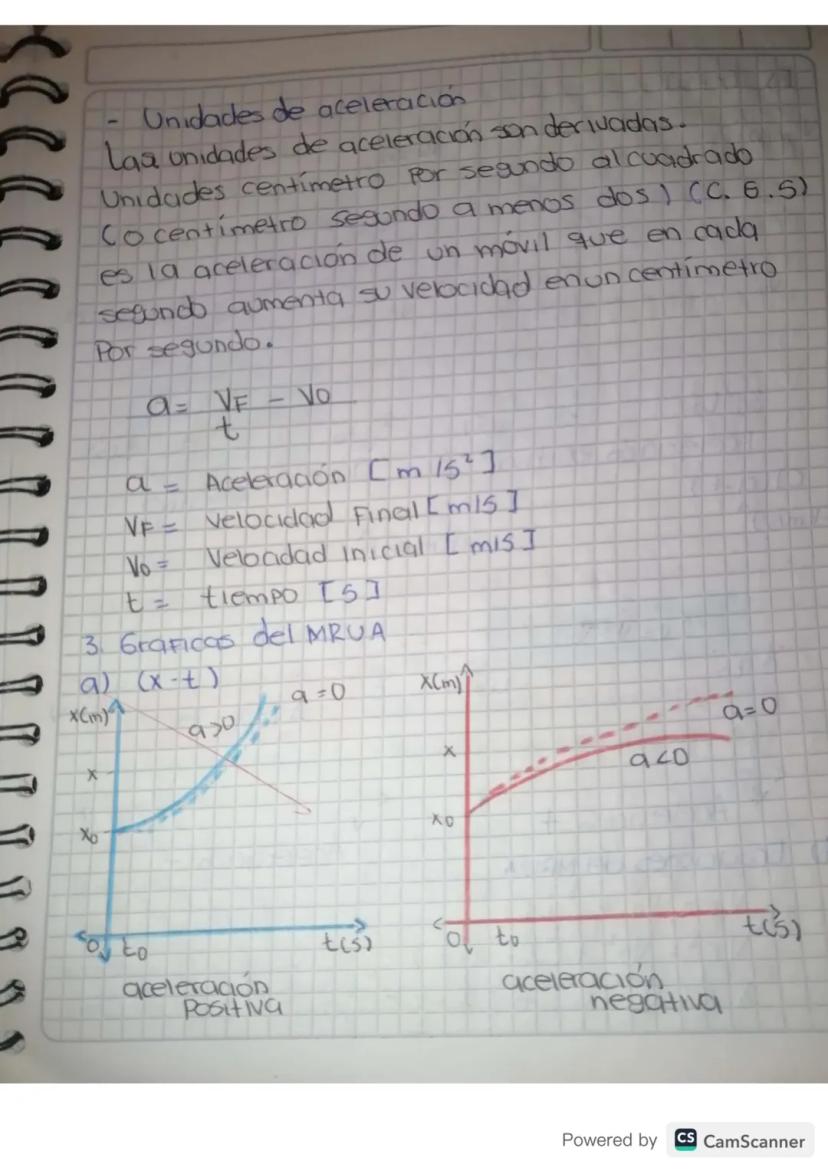 - Unidades de aceleración
Laa unidades de aceleración son derivadas.
Unidades centímetro Por segundo al cuadrado
(o centímetro segundo a menos dos) (C. G. S)
es la aceleración de un móvil que en cada
segundo aumenta su velocidad en un centímetro
Por segundo.
a = VF - V0
t
a = Aceleración [m/s²]
VF = Velocidad Final [m/s]
V0 = Velocidad inicial [m/s]
t = tiempo [s]
3. Graficas del MRUA
a) (x-t)
x(m) a>0 a=0
x
x0
0 t0 t(s)
aceleración
Positiva
x(m) a=0
x a<0
x0
0 t0 t(s)
aceleración
negativa
Powered by CS CamScanner